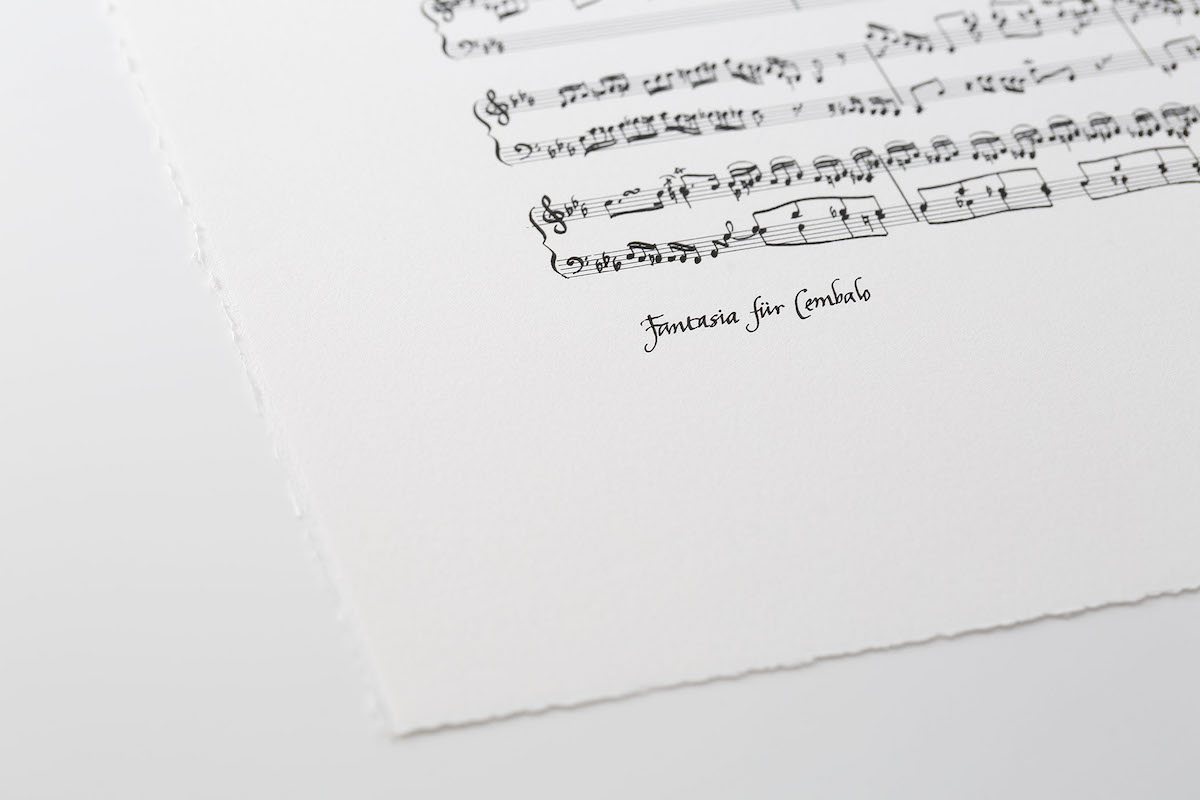 Fantasia für Cembalo